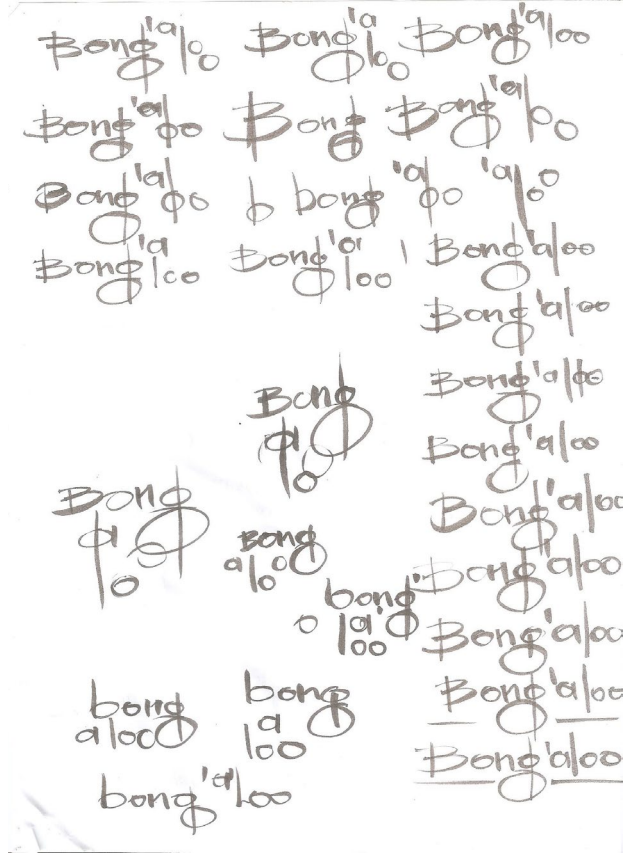 Bong'aloo Bong'aloo Bong'aloo
Bong'aloo Bong Bong'aloo
Bong'aloo b bong 'aloo 'aloo
Bong'aloo Bong'aloo ' Bong'aloo
Bong'aloo
Bong'aloo
Bong'aloo
Bong
alo
Bong'aloo
Bong
alo
Bong
aloo
Bong'aloo
bong'
o la'
oo
Bong'aloo
bong
aloo
bong
a
loo
Bong'aloo
Bong'aloo
bong'aloo